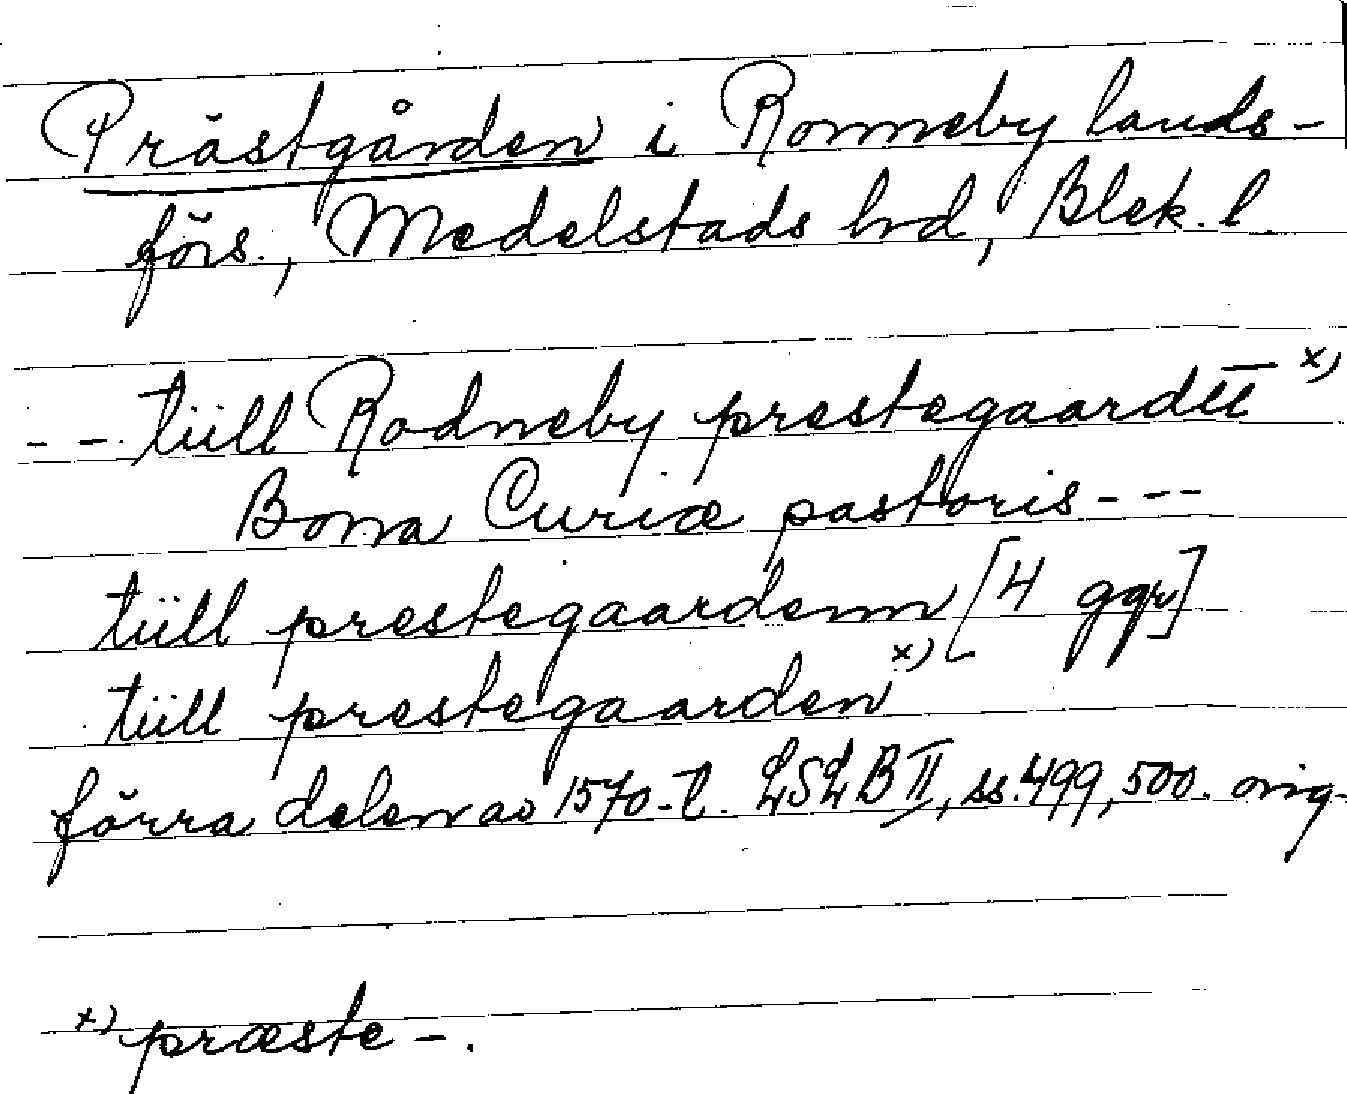 Prästgården i Ronneby lands-
förs., Medelstads hd, Blek. l
- - tüll Rodneby prestegaardu̅ x)
Bona Curiæ pastoris - - -
tüll prestegaardenn [4 ggr]
tüll prestegaarden x)
förra delen av 1570-t. LSLB II, ss. 499, 500. orig.
x) præste - .